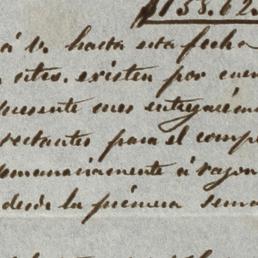 $158.62
á V. hasta esta fecha
sitos. existen por cuen
presente mes entregaré
restantes para el comp
semanariamente á razon
desde la primera sema